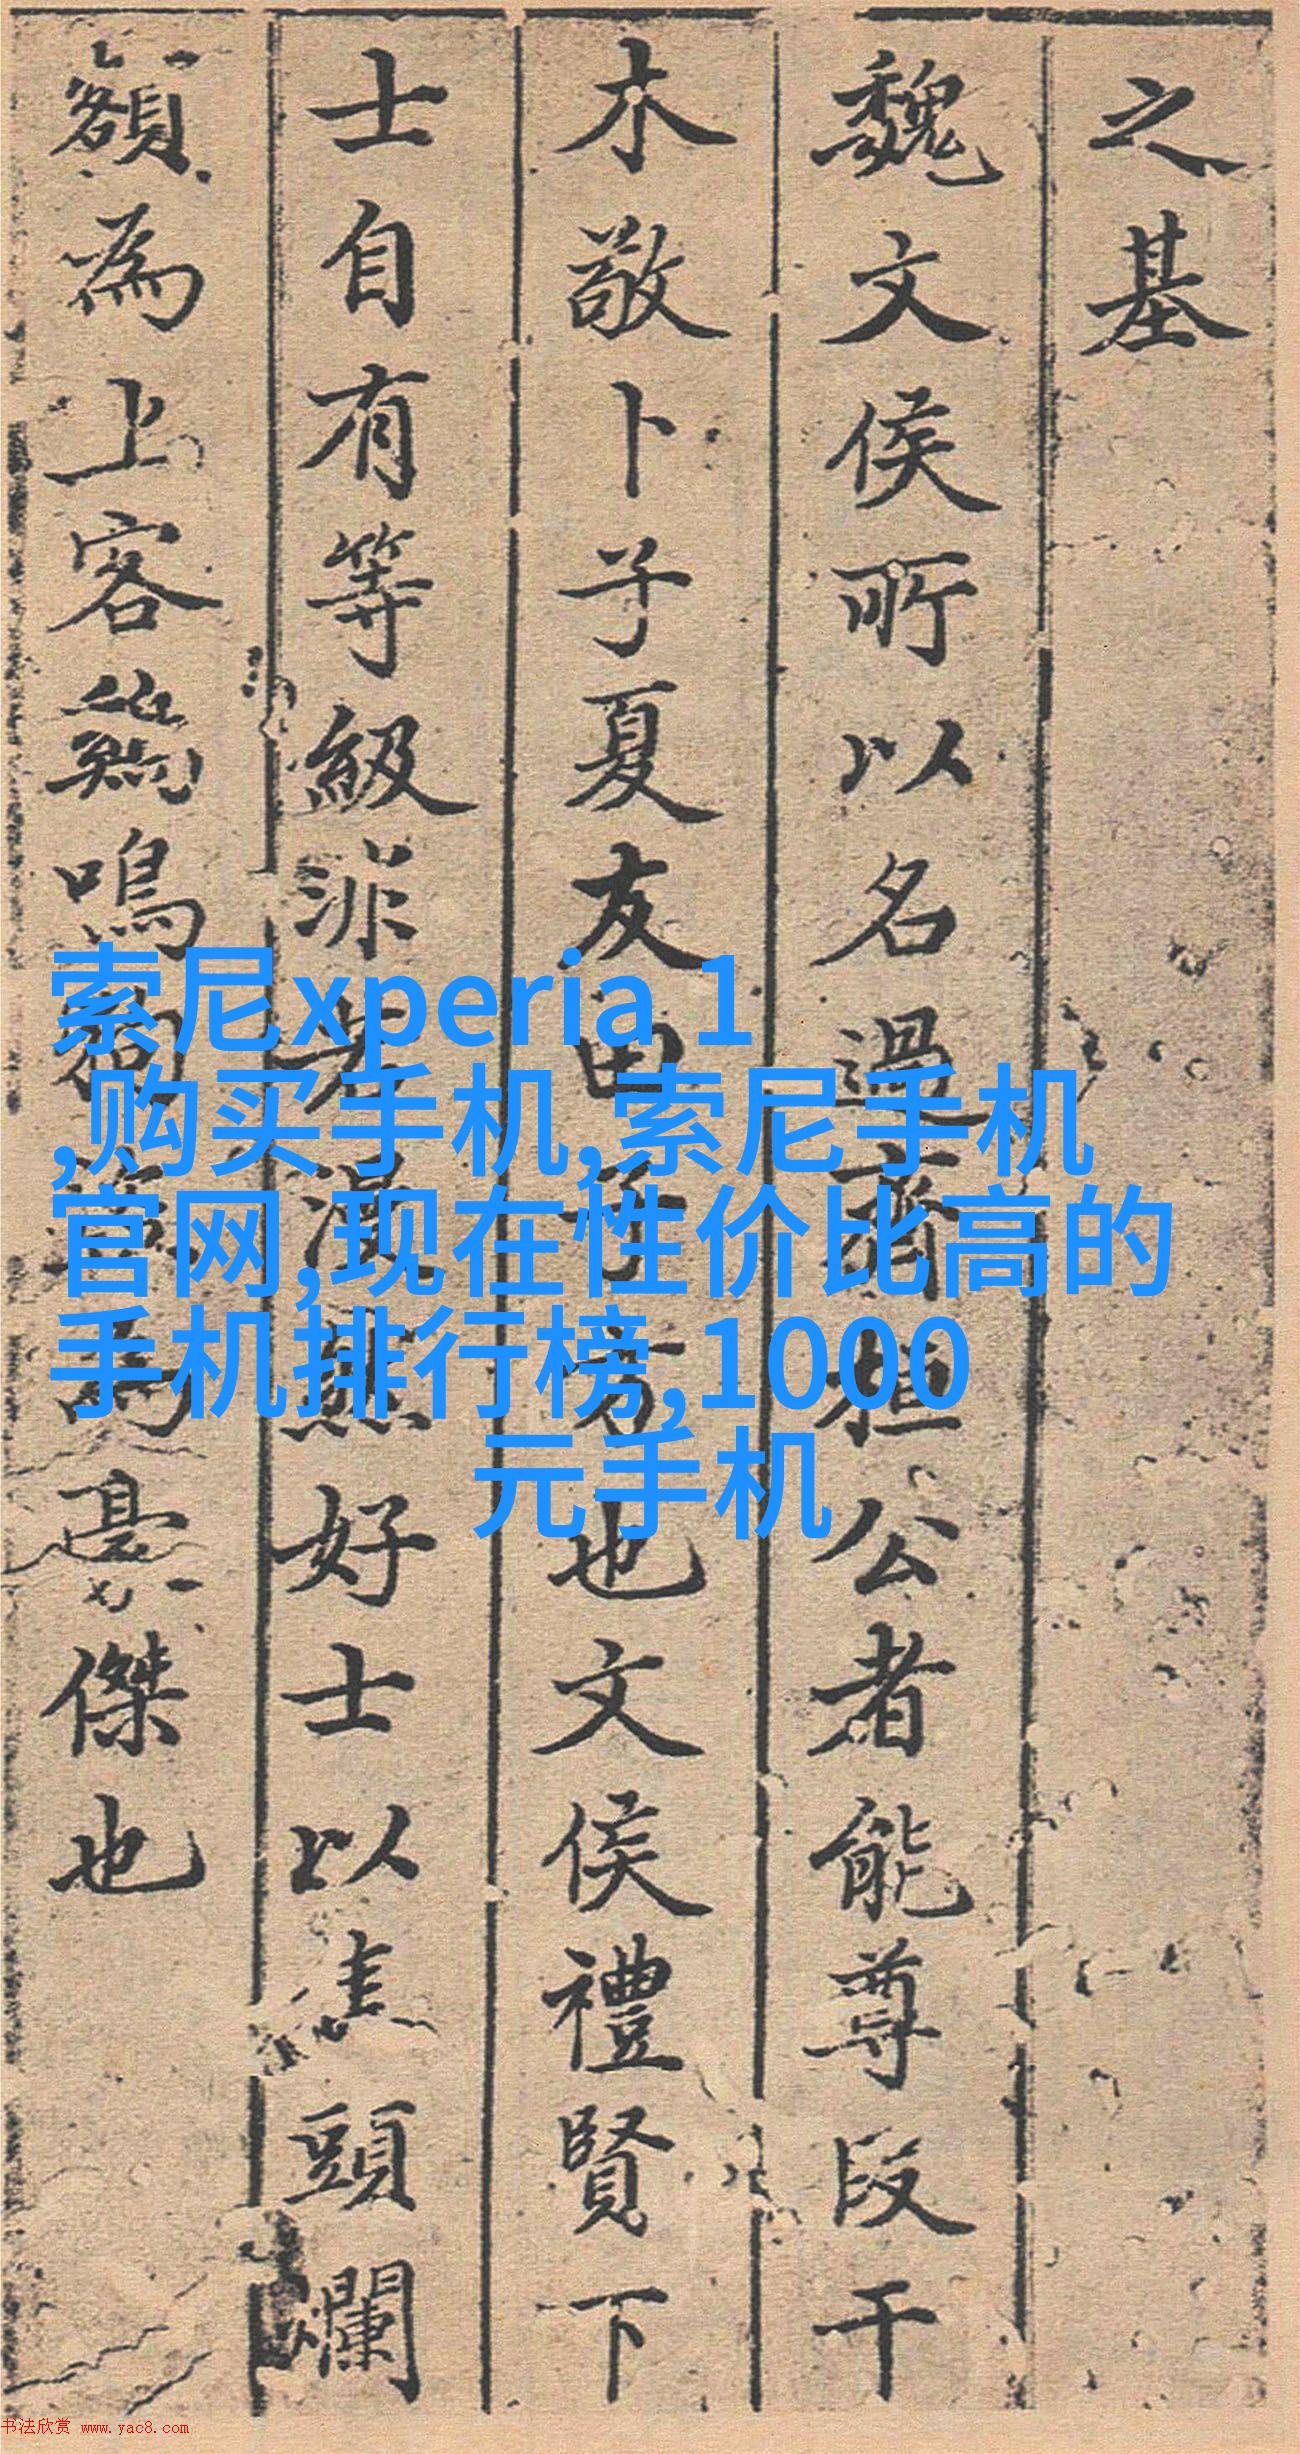 之基
魏文侯所以名過齊桓公者能尊段干
木敬卜子夏友田子方也文侯禮賢下
士自有等級非若漫然好士以焦頭爛
額為上客鷄鳴狗盜為豪傑也
索尼xperia 1
,购买手机,索尼手机
官网,现在性价比高的
手机排行榜,1000
元手机
书法欣赏 www.yac8.com